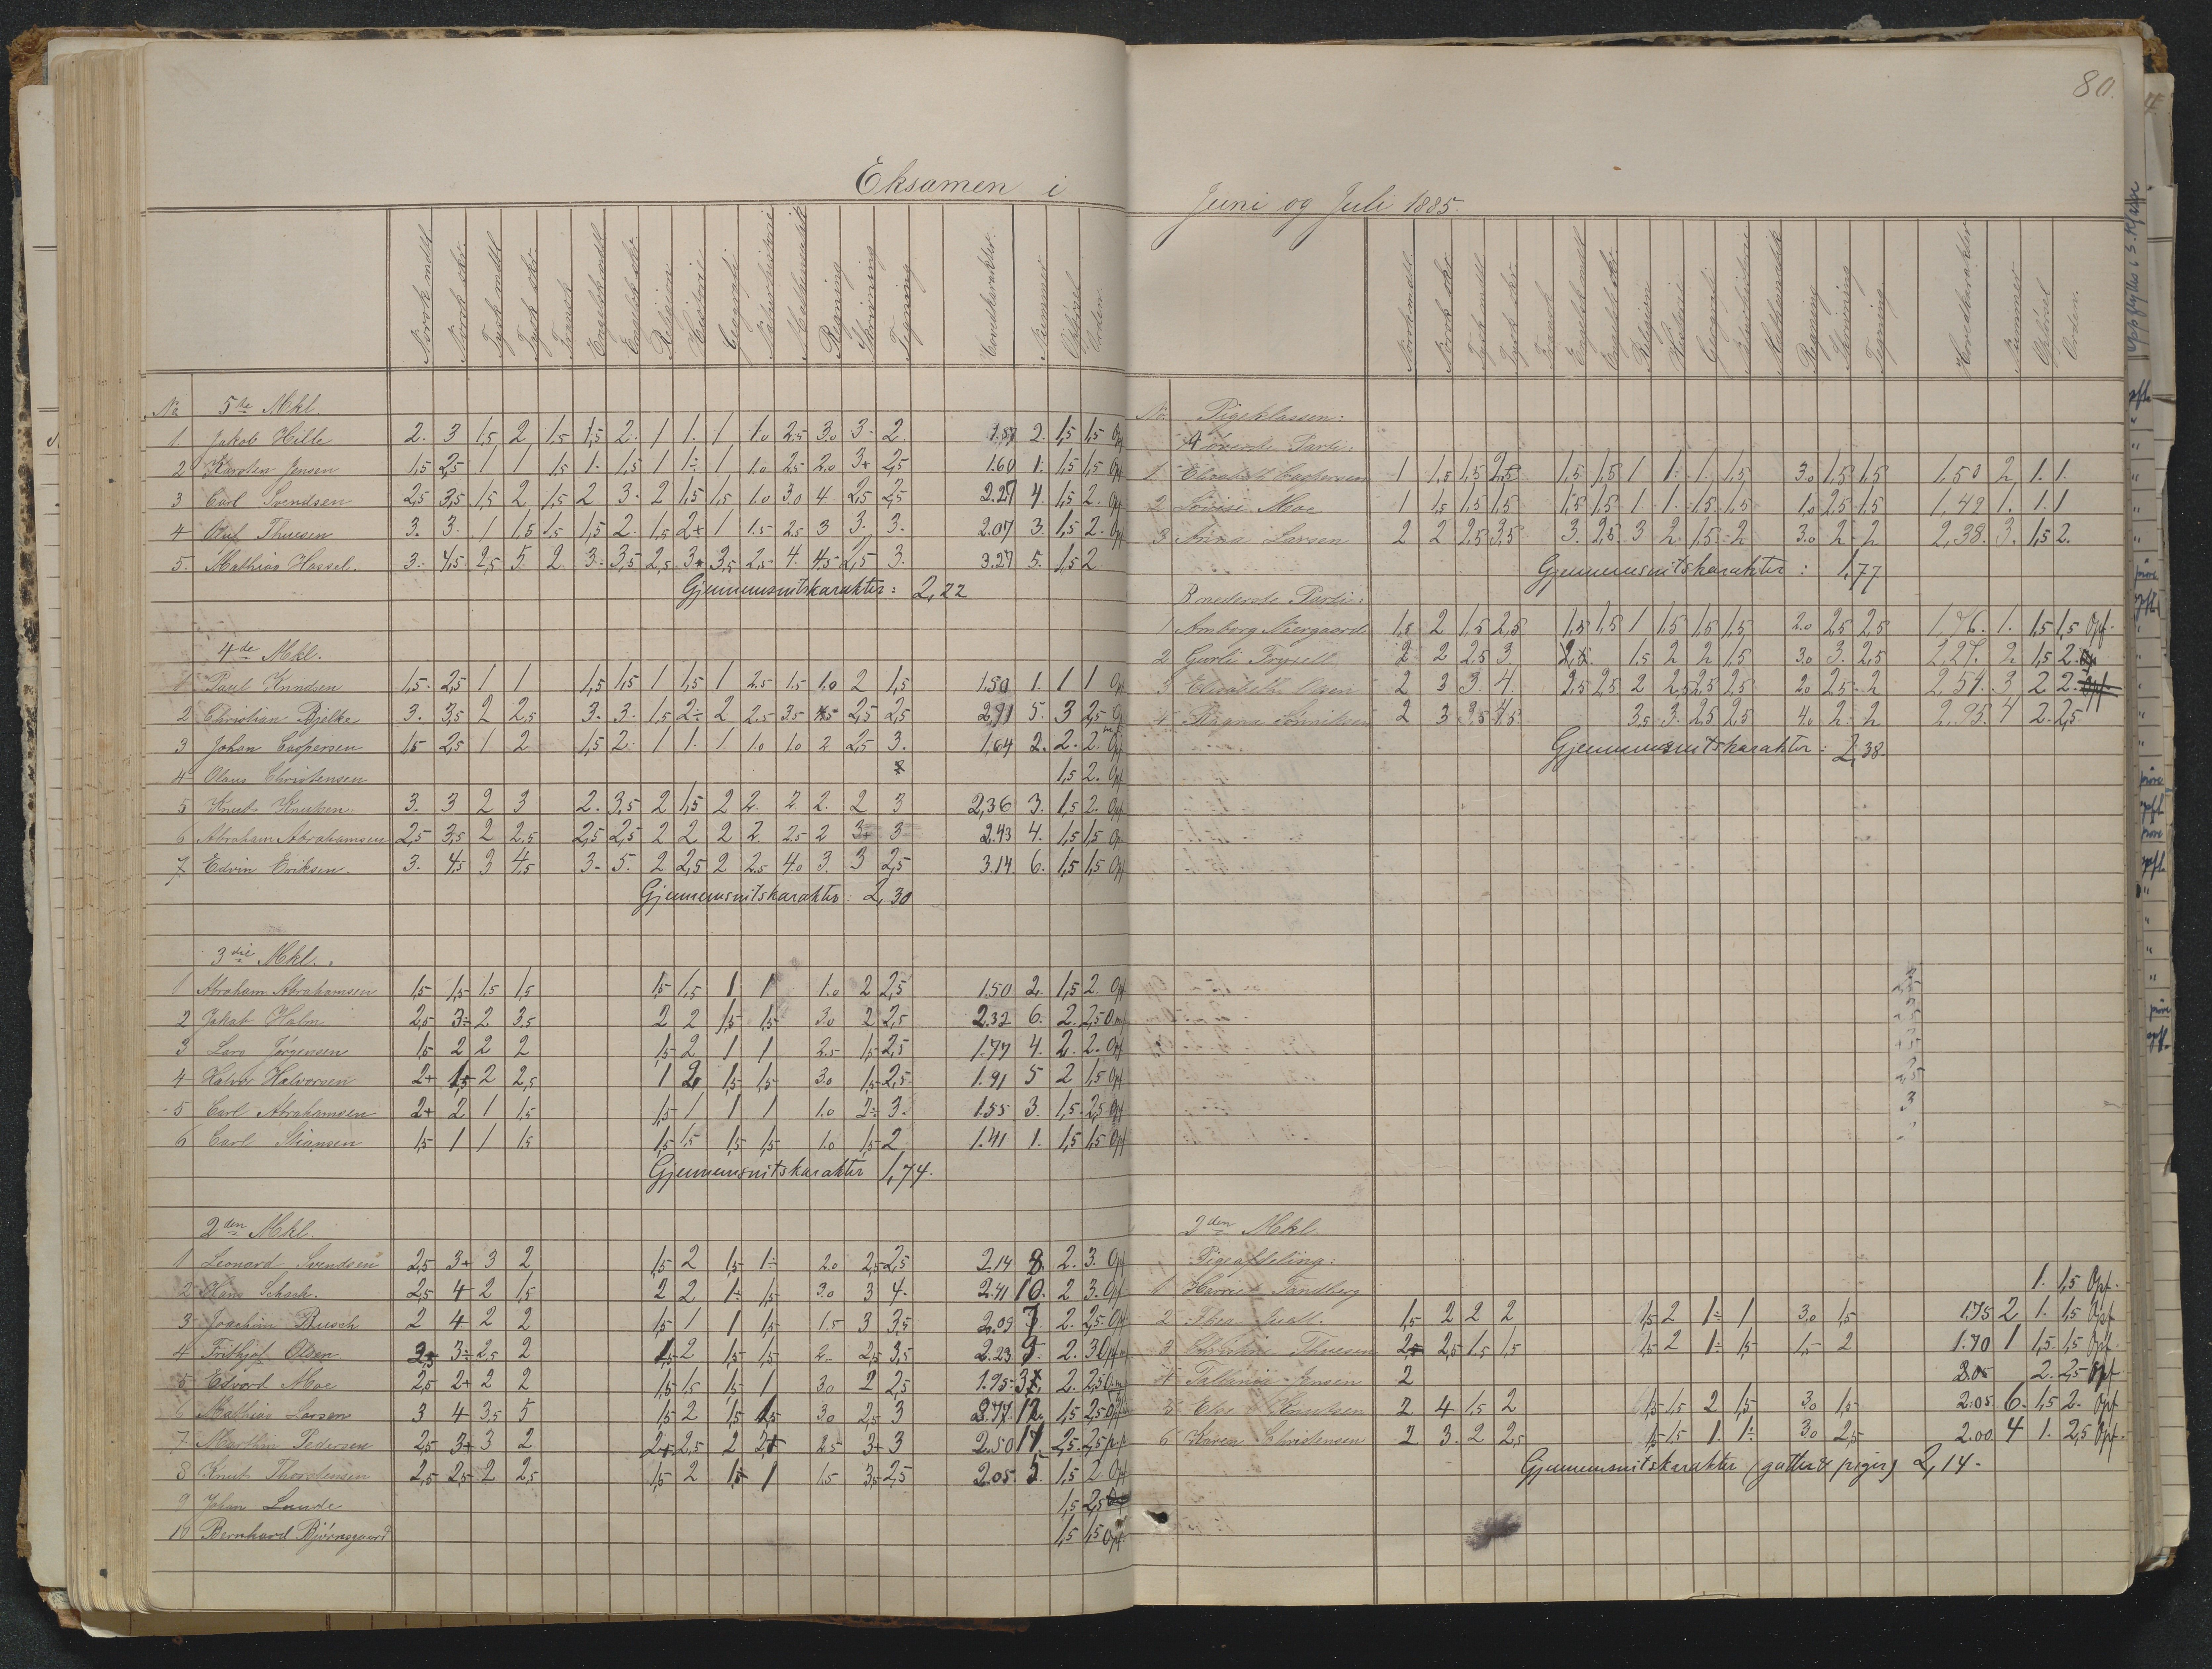 80.
Eksamen i
Juni og Juli 1885.
Norsk mdtl. Norsk skr. Tysk mdtl. Tysk skr. Fransk Engelsk mdtl. Engelsk skr. Religion Historie Geografi Naturhistorie Mathematik Regning Skrivning Tegning Hovedkarakter. Nummer Opførsel Orden
No 5te Mkl.
1 Jakob Hille 2. 3 1,5 2 1.5 1,5 2. 1 1. 1 1.0 2.5 3.0 3. 2. 1.87 2. 1,5 1,5 Opf
2 Karsten Jensen 1,5 2,5 1 1 1.5 1. 1,5 1 1÷ 1 1.0 2.5 2.0 3+ 2,5 1.60 1. 1,5 1,5 Opf
3 Carl Svendsen 2,5 3,5 1,5 2 1,5 2 3. 2 1,5 1,5 1.0 3.0 4 2,5 2,5 2.27 4. 1,5 2. Opf
4 Thuesen 3. 3. 1 1.5 1.5 1,5 2. 1,5 2+ 1 1.5 2.5 3 3. 3. 2.07 3. 1,5 2. Opf
5. Mathias Hassel. 3. 4,5 2,5 5. 2. 3. 3,5 2,5 3+ 3,5 2.5 4. 4.5 2,5 3. 3.27 5. 1,5 2
Gjennemsnitskarakter: 2,22
4de Mkl.
1 Paul Knudsen 1,5. 2,5 1 1 1,5 1,5 1 1,5 1 2.5 1.5 1.0 2 1,5 1.50 1. 1 1 Opf
2 Christian Bjelke 3. 3,5 2 2,5 3. 3. 1,5 2÷ 2 2.5 3.5 2,5 2,5 5. 3 2,5
3 Johan Caspersen 1,5 2,5 1 2 1,5 2. 1 1. 1 1.0 1.0 2 2,5 3. 1.64 2. 2. 2. Opf
4 Olaus Christensen 1,5 2. Opf
5 Knut Knutsen. 3. 3 2 3 2. 3,5 2 1,5 2 2. 2. 2. 2 3 2,36 3. 1,5 2. Opf
6 Abraham Abrahamsen 2,5 3,5 2 2,5 2,5 2,5 2 2 2 2. 2.5 2 3+ 3 2.43 4. 1,5 1,5 Opf
7 Edvin Eriksen. 3. 4,5 3 4,5 3. 5. 2 2,5 2 2.5 4.0 3. 3 2,5 3.14 6. 1,5 1,5 Opf
Gjennemsnitskarakter: 2,30
3die Mkl.
1 Abraham Abrahamsen 1,5 1,5 1,5 1,5 1,5 1,5 1 1 1.0 2 2,5 1.50 2. 1,5 2 Opf
2 Jakob Holm 2,5 3÷ 2 3,5 2 2 1,5 1,5 3.0 2 2,5 2.32 6. 2. 2,5
3 Lars Jørgensen 1,5 2 2 2 1,5 2 1 1 2.5 1,5 2,5 1.77 4. 2. 2. Opf
4 Halvor Halvorsen 2+ 1,5 2 2,5 1 2 1,5 1,5 3.0 1,5 2,5 1.91 5 2 1,5 Opf
5 Carl Abrahamsen 2+ 2 1 1,5 1,5 1 1 1 1.0 2÷ 3. 1.55 3. 1,5. 2,5 Opf
6 Carl Stiansen 1,5 1 1 1,5 1,5 1,5 1,5 1,5 1.0 1,5 2 1.41 1. 1,5 1,5 Opf
Gjennemsnitskarakter 1,74.
2den Mkl.
1 Leonard Svendsen 2,5 3+ 3 2 1,5 2 1,5 1÷ 2.0 2,5 2,5 2.14 8. 2. 3. Opf
2 Hans Schack. 2,5 4 2 1,5 2 2 1÷ 1,5 3.0 3 4. 2.41 10. 2 3. Opf
3 Joachim Rusch 2 4 2 2 1,5 1 1 1,5 1.5 3 3,5 2.09 7. 2. 2,5. Opf
4 Frithjof Olsen 3÷ 2,5 2 2 1,5 1,5 2. 2,5 3,5 2.23 9. 2. 3
5 Edvard Moe 2,5 2+ 2 2 1,5 1,5 1,5 1 3.0 2 2,5 1.95 2. 2,5
6 Mathias Larsen 3 4 3,5 5 1,5 2 1,5 1,5 3.0 2,5 3 2.77 12. 1,5 2,5
7 Marthin Pedersen 2,5 3+ 3 2 2+ 2,5 2 2+ 2.5 3+ 3 2.50 11. 2,5. 2,5
8 Knut Thorstensen 2,5 2,5 2 2,5 1,5 2 1,5 1 1.5 3,5 2,5 2.05 5. 1,5 2. Opf
9 Johan Lunde 1,5 2,5
10 Bernhard Bjørnsgaard 1,5 1,5 Opf
Norsk mdtl. Norsk skr. Tysk mdtl. Tysk skr. Fransk Engelsk mdtl. Engelsk skr. Religion Historie Geografi Naturhistorie Mathematik Regning Skrivning Tegning Hovedkarakter Nummer Opførsel Orden.
No. Pigeklassen:
A øverste Parti:
1 Elisabeth Caspersen 1 1,5 1,5 2,5 1,5 1,5 1 1÷ 1. 1,5 3.0 1,5 1,5 1,50 2, 1. 1.
2 Lovise Moe 1 1,5 1,5 1,5 1,5 1,5 1 1. 1,5 1,5 1.0 2,5 1,5 1,42 1. 1. 1
3 Anna Larsen 2 2 2,5 3,5 3. 2,5 3 2. 1,5 2 3.0 2. 2 2,38. 3. 1,5 2.
Gjennemsnitskarakter: 1,77
B nederste Parti:
1 Amborg Niergaard 1,5 2 1,5 2,5 1,5 1,5 1 1,5 1,5 1,5 2.0 2,5 2,5 1,76. 1. 1,5 1,5 Opf.
2 Gurli Frysell 2 2 2,5 3 1,5 2 2 1,5 3.0 3. 2,5 2,27. 2 1,5 2.
3 Elisabeth Olsen 2 3 3. 4. 2,5 2,5 2 2,5 2,5 2,5 2.0 2,5. 2 2,54. 3 2 2.
4 Ragna 2 3 3,5 4,5 3,5 3. 2,5 2,5 4.0 2. 2 2,95. 4 2. 2,5
Gjennemsnitskarakter: 2,38.
2den Mkl.
Pigeafdeling:
1 Harriet Tandberg 1. 1,5 Opf.
2 Thea Juell. 1,5 2 2 2 1,5 2 1÷ 1 3.0 1,5 1.75 2 1. 1,5 Opf
3 Thuesen 2,5 2,5 1,5 1,5 1,5 2 1÷ 1,5 1,5 2 1.70 1 1,5. 1,5 Opf.
4 Jensen 2 2. 2,5 Opf
5 Else Knutsen 2 4 1,5 2 1,5 1,5 2 1,5 3.0 1,5 2.05 6. 1,5 2. Opf
6 Karen Christensen 2 3. 2 2,5 1,5 1,5 1. 1÷ 3.0 2,5 2.00 4 1. 2,5 Opf.
Gjennemsnitskarakter (gutter & piger) 2,14.